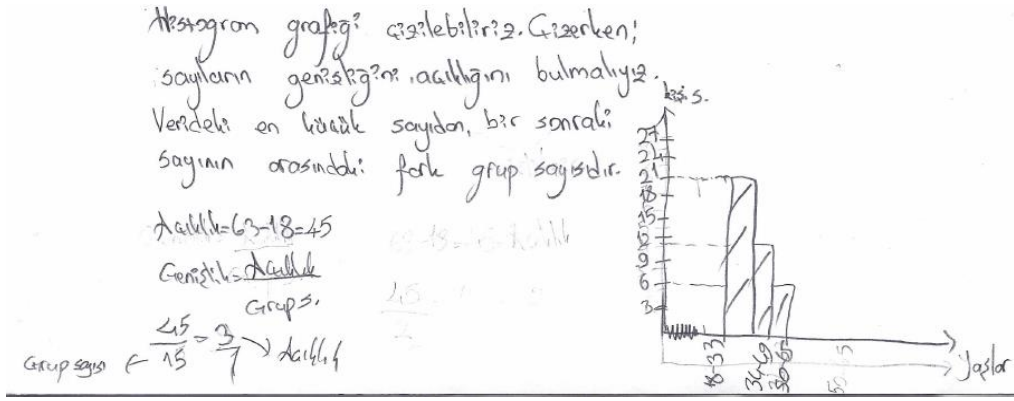 Histogram grafiği çizilebiliriz. Çizerken;
sayıların genişliğini, açıklığını bulmalıyız.
Verideki en küçük sayıdan, bir sonraki
sayının arasındaki fark grup sayısıdır.
Açıklık=63-18=45
Genişlik=Açıklık
Grup s.
45/15 = 3/1 → Açıklık
Grup sayısı ←
kişi s.
27
24
21
18
15
12
9
6
3
18-33
34-49
50-65
Yaşlar
50-65